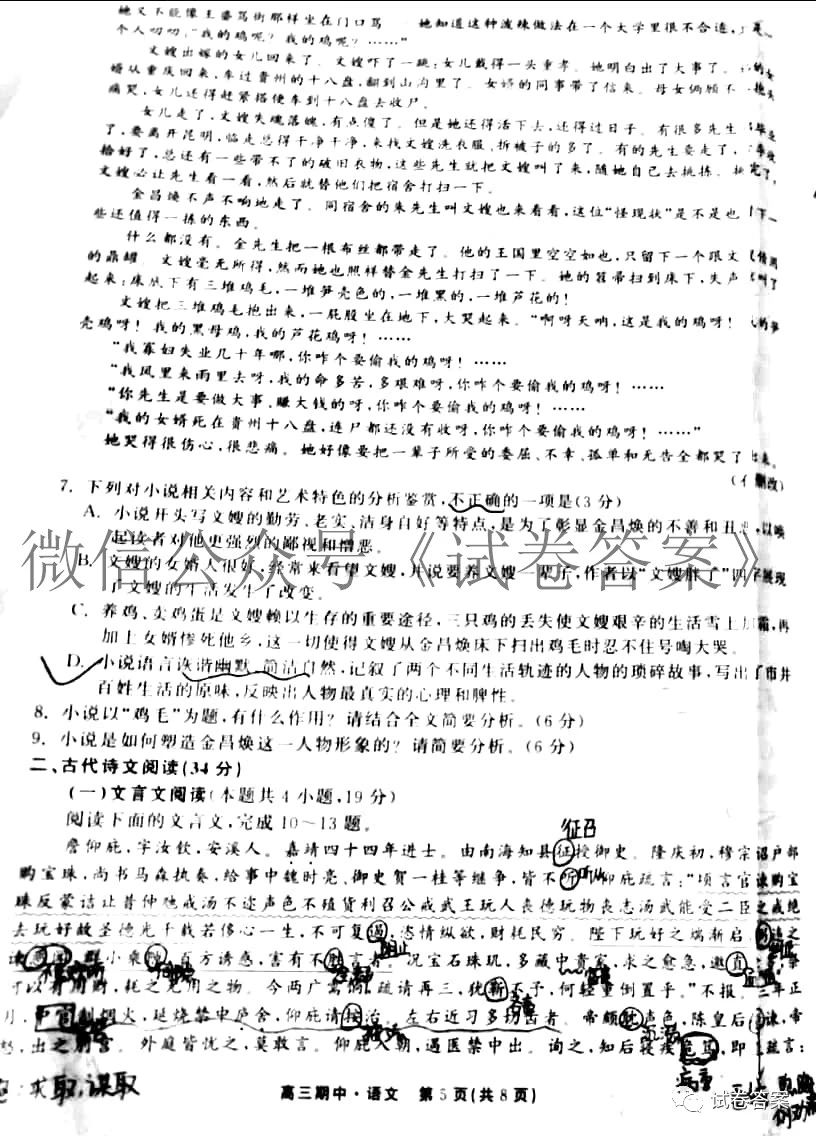 她又不能像王婆骂街那样坐在门口骂 她知道这种泼辣做法在一个大学里很不合适，
个人叨叨，“我的鸡呢？我的鸡呢？……”
文嫂出嫁的女儿回来了。文嫂吓了一跳：女儿戴得一头重孝。她明白出了大事了。
婿从重庆回来，车过贵州的十八盘，翻到山沟里了。女婿的同事带了信来。母女俩顾不
痛哭，女儿还得赶紧搭便车到十八盘去收尸。
女儿走了，文嫂失魂落魄，有点傻了。但是她还得活下去，还得过日子。有很多先生
了，要离开昆明，临走总得干干净净，来找文嫂洗衣服，拆被子的多了。有的先生要走了，
拾好了，总还有一些带不了的破旧衣物，这些先生就把文嫂叫了来，随她自己去挑拣。挑完了，
文嫂必让先生看一看，然后就替他们把宿舍打扫一下。
金昌焕不声不响地走了。同宿舍的朱先生叫文嫂也来看看，这位“怪现状”是不是也
些还值得一拣的东西。
什么都没有。金先生把一根布丝都带走了。他的王国里空空如也，只留下一个跟文
的鼎罐。文嫂毫无所得，然而她也照样替金先生打扫了一下。她的笤帚扫到床下，失声
起来：床底下有三堆鸡毛，一堆笋壳色的，一堆黑的，一堆芦花的！
文嫂把三堆鸡毛抱出来，一屁股坐在地下，大哭起来。“啊呀天呐，这是我的鸡呀！
壳鸡呀！我的黑母鸡，我的芦花鸡呀！……
“我寡妇失业几十年哪，你咋个要偷我的鸡呀！……
“我风里来雨里去呀，我的命多苦，多艰难呀，你咋个要偷我的鸡呀！……
“你先生是要做大事、赚大钱的呀，你咋个要偷我的鸡呀！……
“我的女婿死在贵州十八盘，连尸都还没有收呀，你咋个要偷我的鸡呀！……”
她哭得很伤心，很悲痛。她好像要把一辈子所受的委屈、不幸、孤单和无告全都哭了出来。
7. 下列对小说相关内容和艺术特色的分析鉴赏，不正确的一项是(3分)
A. 小说开头写文嫂的勤劳、老实、洁身自好等特点，是为了彰显金昌焕的不善和丑
起读者对他更强烈的鄙视和憎恶。
微信公众号《试卷答案》
B. 文嫂的女婿人很好，经常来看望文嫂，并说要养文嫂一辈子，作者以“文嫂胖了”四字展现
了文嫂的生活发生了改变。
C. 养鸡、卖鸡蛋是文嫂赖以生存的重要途径，三只鸡的丢失使文嫂艰辛的生活雪上加霜，再
加上女婿惨死他乡，这一切使得文嫂从金昌焕床下扫出鸡毛时忍不住号啕大哭。
D. 小说语言诙谐幽默、简洁自然，记叙了两个不同生活轨迹的人物的琐碎故事，写出了市井
百姓生活的原味，反映出人物最真实的心理和脾性。
8. 小说以“鸡毛”为题，有什么作用？请结合全文简要分析。(6分)
9. 小说是如何塑造金昌焕这一人物形象的？请简要分析。(6分)
二、古代诗文阅读(34分)
(一)文言文阅读(本题共4小题，19分)
阅读下面的文言文，完成10～13题。
征召
詹仰庇，字汝钦，安溪人。嘉靖四十四年进士。由南海知县征授御史。隆庆初，穆宗诏户部
购宝珠，尚书马森执奏，给事中魏时亮、御史贺一桂等继争，皆不听。仰庇疏言：“顷言官谏购宝
珠反蒙诘让昔仲虺戒汤不迩声色不殖货利召公戒武王玩人丧德玩物丧志汤武能受二臣之戒绝
去玩好故圣德光千载若侈心一生，不可复遏，恣情纵欲，财耗民穷。陛下玩好之端渐启，
群小乘隙，百方诱惑，害有不胜言者。况宝石珠玑，多藏中贵家，求之愈急，邀直
可以有用财，耗之无用之物。今两广需饷，疏请再三，犹靳不予，何轻重倒置乎。”不报。三年正
月，中官制烟火，延烧禁中庐舍，仰庇请按治。左右近习多切齿者。帝颇耽声色，陈皇后
怒，出之别宫。外庭皆忧之，莫敢言。仰庇入朝，遇医禁中出。询之，知后寝疾危笃，即上疏言：
病重
求取，谋取
高三期中·语文 第5页(共8页)
试卷答案